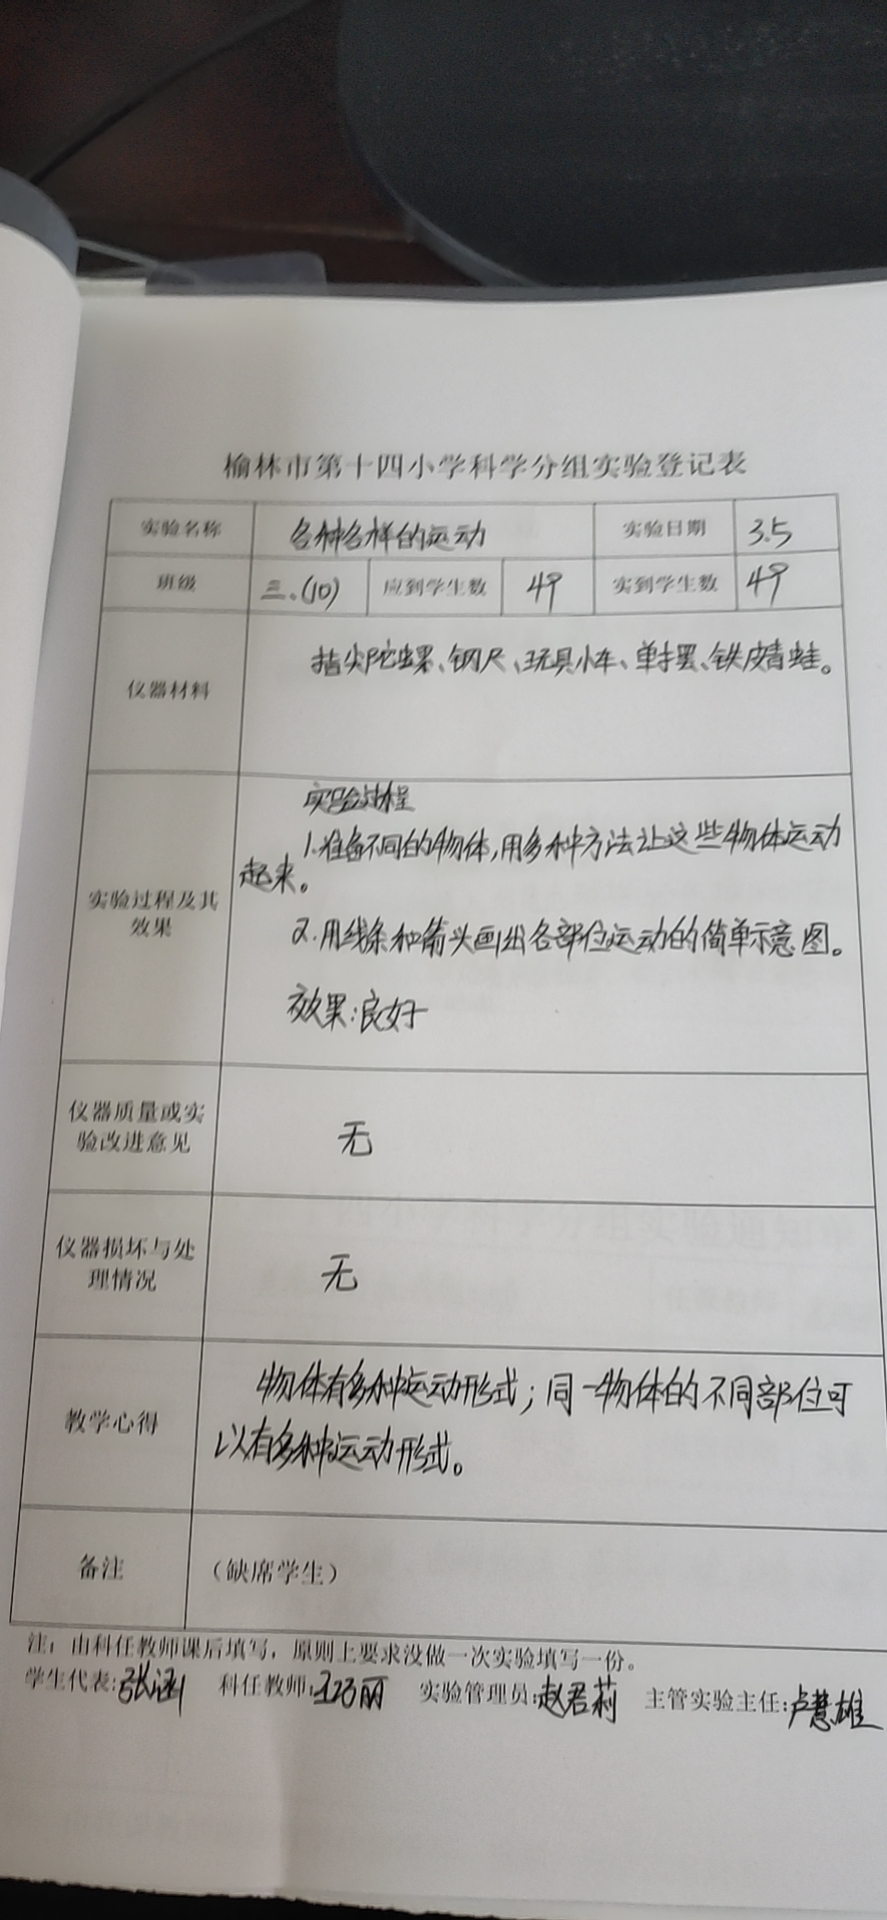 榆林市第十四小学科学分组实验登记表
实验名称 各种各样的运动 实验日期 3.5
班级 三.(10) 应到学生数 49 实到学生数 49
仪器材料 指尖陀螺、钢尺、玩具小车、单摆、铁皮青蛙。
实验过程及其
效果
实验过程
1.准备不同的物体,用多种方法让这些物体运动
起来。
2.用线条和箭头画出各部位运动的简单示意图。
效果:良好
仪器质量或实
验改进意见
无
仪器损坏与处
理情况
无
教学心得
物体有多种运动形式;同一物体的不同部位可
以有多种运动形式。
备注 (缺席学生)
注:由科任教师课后填写,原则上要求没做一次实验填写一份。
学生代表:张涵 科任教师: 实验管理员:赵君莉 主管实验主任:卢慧雄